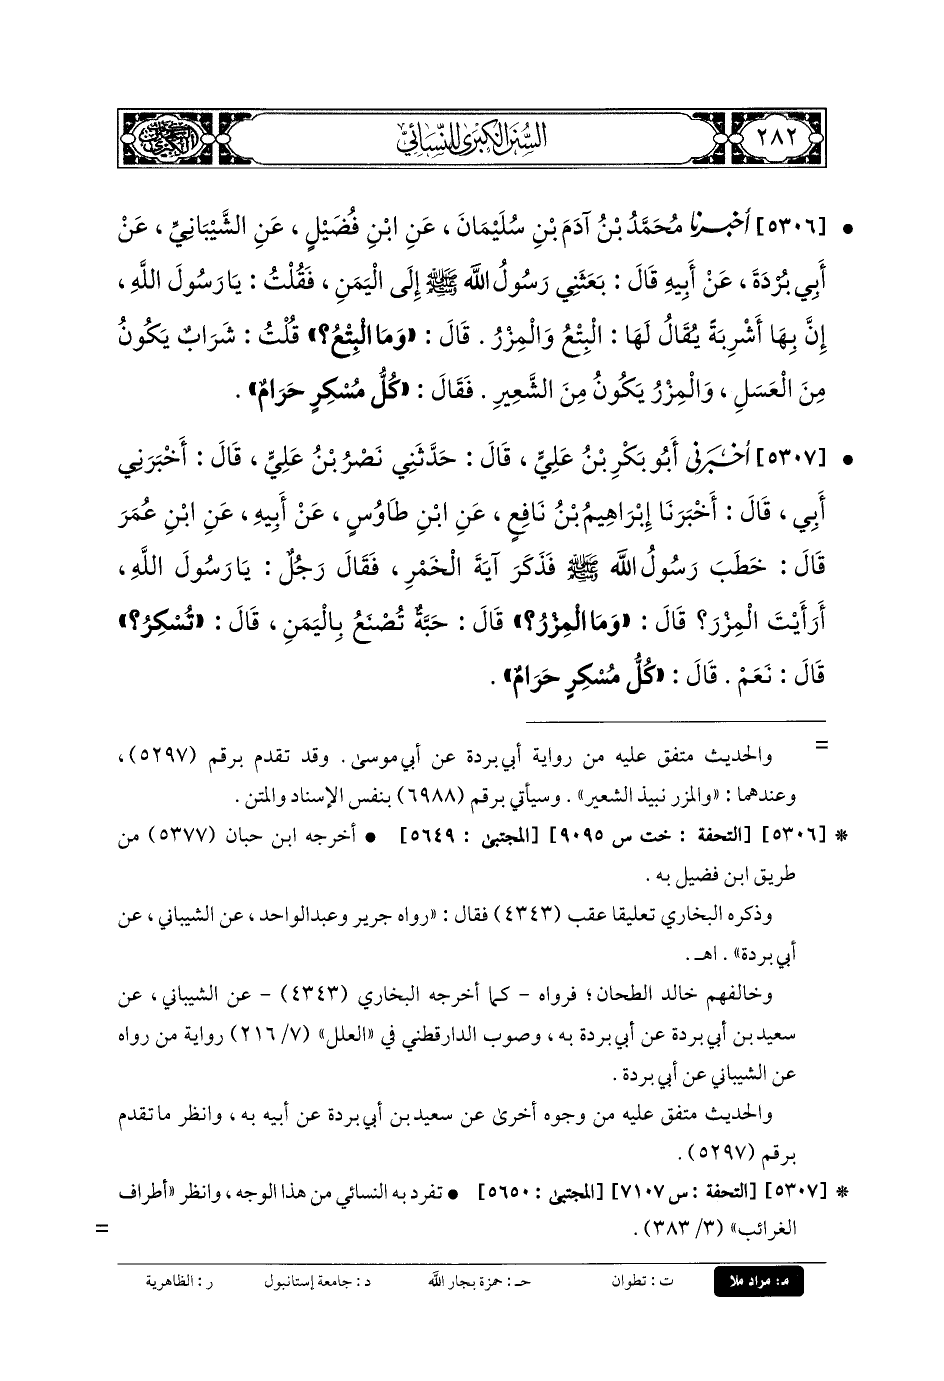 ٢٨٢
السنن الكبرى للنسائي
• [٥٣٠٦] أَخْبَرَنَا مُحَمَّدُ بْنُ آدَمَ بْنِ سُلَيْمَانَ ، عَنِ ابْنِ فُضَيْلٍ ، عَنِ الشَّيْبَانِيِّ ، عَنْ
أَبِي بُرْدَةَ ، عَنْ أَبِيهِ قَالَ : بَعَثَنِي رَسُولُ اللَّه ﷺ إِلَى الْيَمَنِ ، فَقُلْتُ : يَا رَسُولَ اللَّهِ ،
إِنَّ بِهَا أَشْرِبَةً يُقَالُ لَهَا : الْبِتْعُ وَالْمِزْرُ . قَالَ : «وَمَا الْبِتْعُ؟» قُلْتُ : شَرَابٌ يَكُونُ
مِنَ الْعَسَلِ ، وَالْمِزْرُ يَكُونُ مِنَ الشَّعِيرِ . فَقَالَ : «كُلُّ مُسْكِرٍ حَرَامٌ» .
• [٥٣٠٧] أَخْبَرَنِي أَبُو بَكْرِ بْنُ عَلِيٍّ ، قَالَ : حَدَّثَنِي نَصْرُ بْنُ عَلِيٍّ ، قَالَ : أَخْبَرَنِي
أَبِي ، قَالَ : أَخْبَرَنَا إِبْرَاهِيمُ بْنُ نَافِعٍ ، عَنِ ابْنِ طَاوُسٍ ، عَنْ أَبِيهِ ، عَنِ ابْنِ عُمَرَ
قَالَ : خَطَبَ رَسُولُ اللَّه ﷺ فَذَكَرَ آيَةَ الْخَمْرِ ، فَقَالَ رَجُلٌ : يَا رَسُولَ اللَّهِ ،
أَرَأَيْتَ الْمِزْرَ؟ قَالَ : «وَمَا الْمِزْرُ؟» قَالَ : حَبَّةٌ تُصْنَعُ بِالْيَمَنِ ، قَالَ : «تُسْكِرُ؟»
قَالَ : نَعَمْ . قَالَ : «كُلُّ مُسْكِرٍ حَرَامٌ» .
= والحديث متفق عليه من رواية أبي بردة عن أبي موسى . وقد تقدم برقم (٥٢٩٧) ،
وعندهما : «والمزر نبيذ الشعير» . وسيأتي برقم (٦٩٨٨) بنفس الإسناد والمتن .
* [٥٣٠٦] [التحفة : خت س ٩٠٩٥] [المجتبى : ٥٦٤٩] • أخرجه ابن حبان (٥٣٧٧) من
طريق ابن فضيل به .
وذكره البخاري تعليقا عقب (٤٣٤٣) فقال : «رواه جرير وعبدالواحد ، عن الشيباني ، عن
أبي بردة» . اهـ .
وخالفهم خالد الطحان ؛ فرواه - كما أخرجه البخاري (٤٣٤٣) - عن الشيباني ، عن
سعيد بن أبي بردة عن أبي بردة به ، وصوب الدارقطني في «العلل» (٧/ ٢١٦) رواية من رواه
عن الشيباني عن أبي بردة .
والحديث متفق عليه من وجوه أخرى عن سعيد بن أبي بردة عن أبيه به ، وانظر ما تقدم
برقم (٥٢٩٧) .
* [٥٣٠٧] [التحفة : س ٧١٠٧] [المجتبى : ٥٦٥٠] • تفرد به النسائي من هذا الوجه ، وانظر «أطراف
الغرائب» (٣/ ٣٨٣) . =
م : مراد ملا ت : تطوان حـ : حمزة بجار اللَّه د : جامعة إستانبول ر : الظاهرية